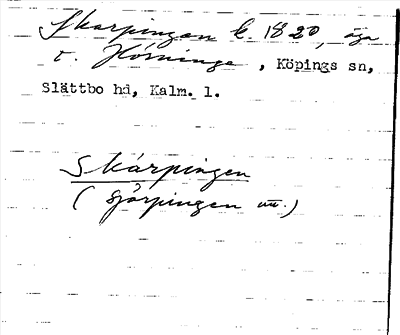 Skarpingen k. 1820, äga
t. Hörninge, Köpings sn,
Slättbo hd, Kalm. l.
Skärpingen
( Sjörpingen utt.)